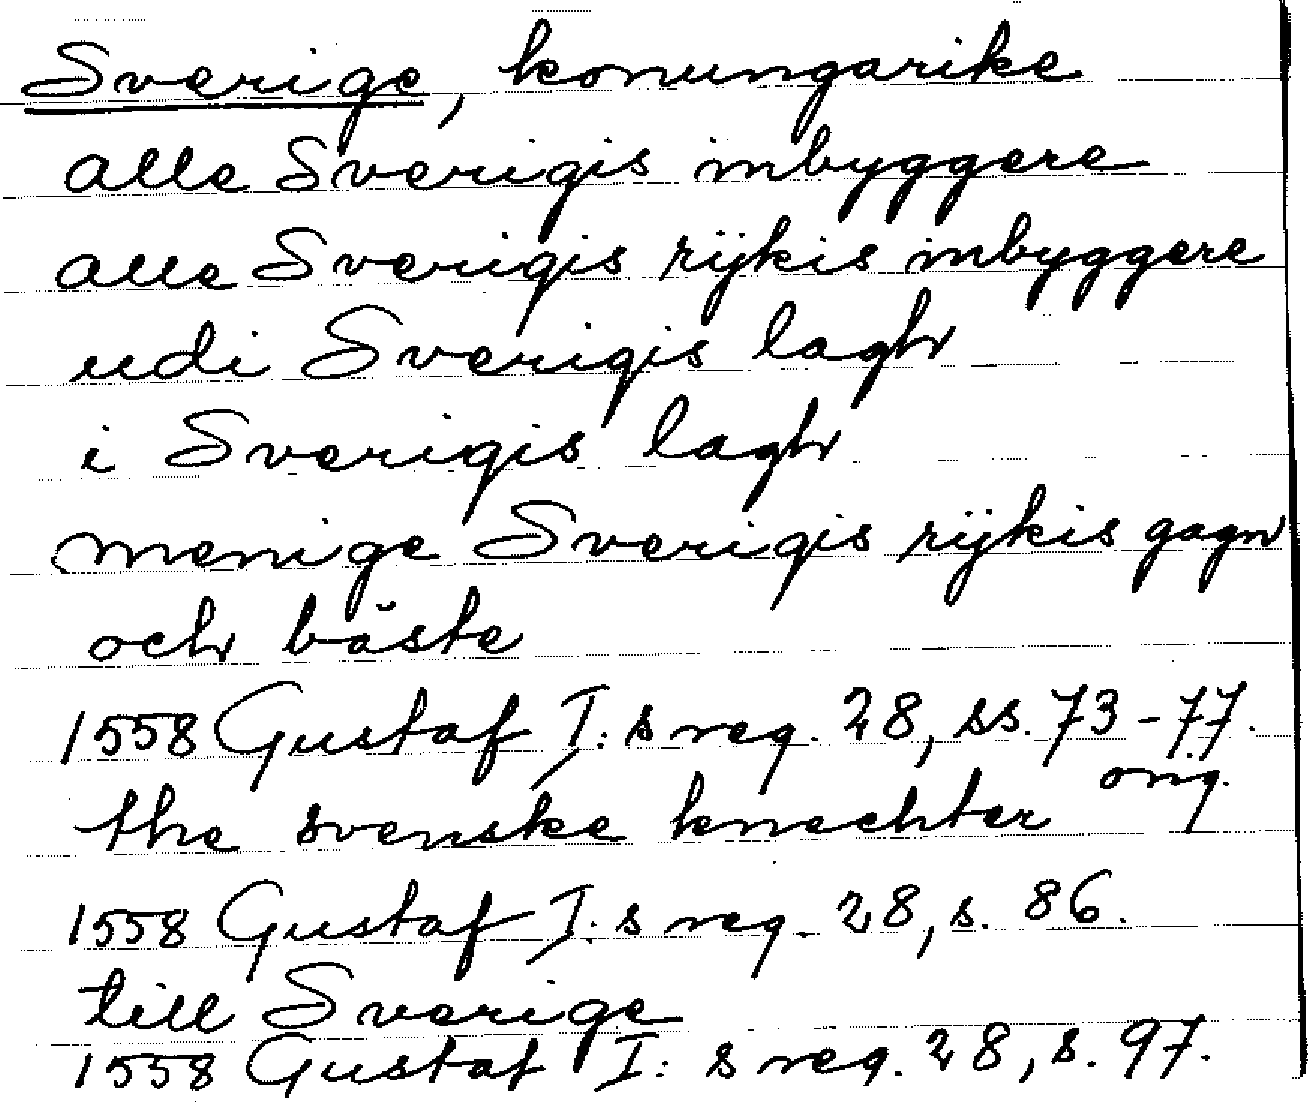 Sverige, konungarike
alle Sverigis inbyggere
alle Sverigis rijkis inbyggere
udi Sverigis lagh
i Sverigis lagh
menige Sverigis rijkis gagn
och bäste
1558 Gustaf I:s reg. 28, ss. 73-77.
orig.
the svenske knechter
1558 Gustaf I:s reg. 28, s. 86.
till Sverige
1558 Gustaf I:s reg. 28, s. 97.